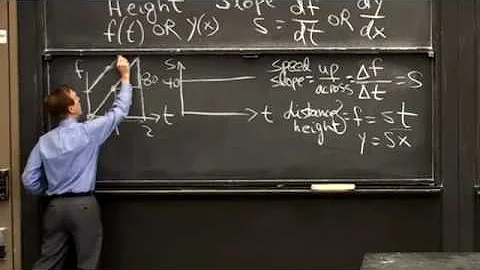 Height Slope df dy
f(t) OR y(x) S = dt OR dx
f 80 1 2 t
S 40 t
speed slope = up/across = Δf/Δt = S
distance height } = f = st
y = sx